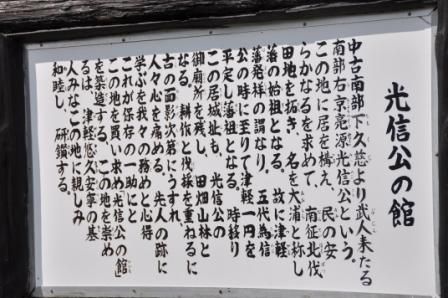 光信公の館
中古南部下久慈より武人来たる
南部右京亮源光信公という。
この地に居を構え、民の安
らかなるを求めて、南征北伐
田地を拓き、名を大浦と称し
藩の始祖となる。故に津軽
藩発祥の謂なり。五代為信
公の時に至りて津軽一円を
平定し藩祖となる。時移り
この居城址も、光信公の
御廟所を残し、田畑山林と
なる。耕作と伐採を重ねるに
古の面影次第にうすれ、
人々心を痛める。先人の跡に
学ぶを我々の務めと心得
これが保存の一助にと
この地を買い求め「光信公の館」
を築造する。この地を崇め
るは、津軽悠久安寧の基
人みなこの地に親しみ
和睦し、研鑽する。